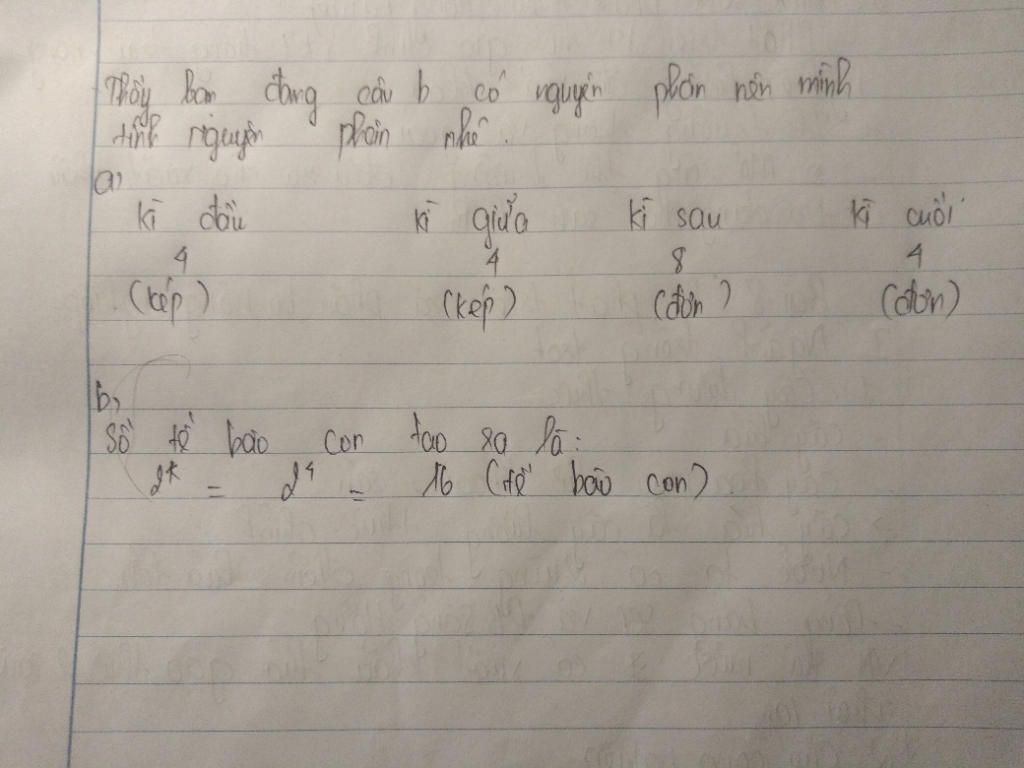 Thấy bạn đăng câu b có nguyên phân nên mình
tính nguyên phân nhé.
a,
kì đầu kì giữa kì sau kì cuối
4 4 8 4
(kép) (kép) (đơn) (đơn)
b,
Số tế bào con tạo ra là:
2^k = 2^4 = 16 (tế bào con).